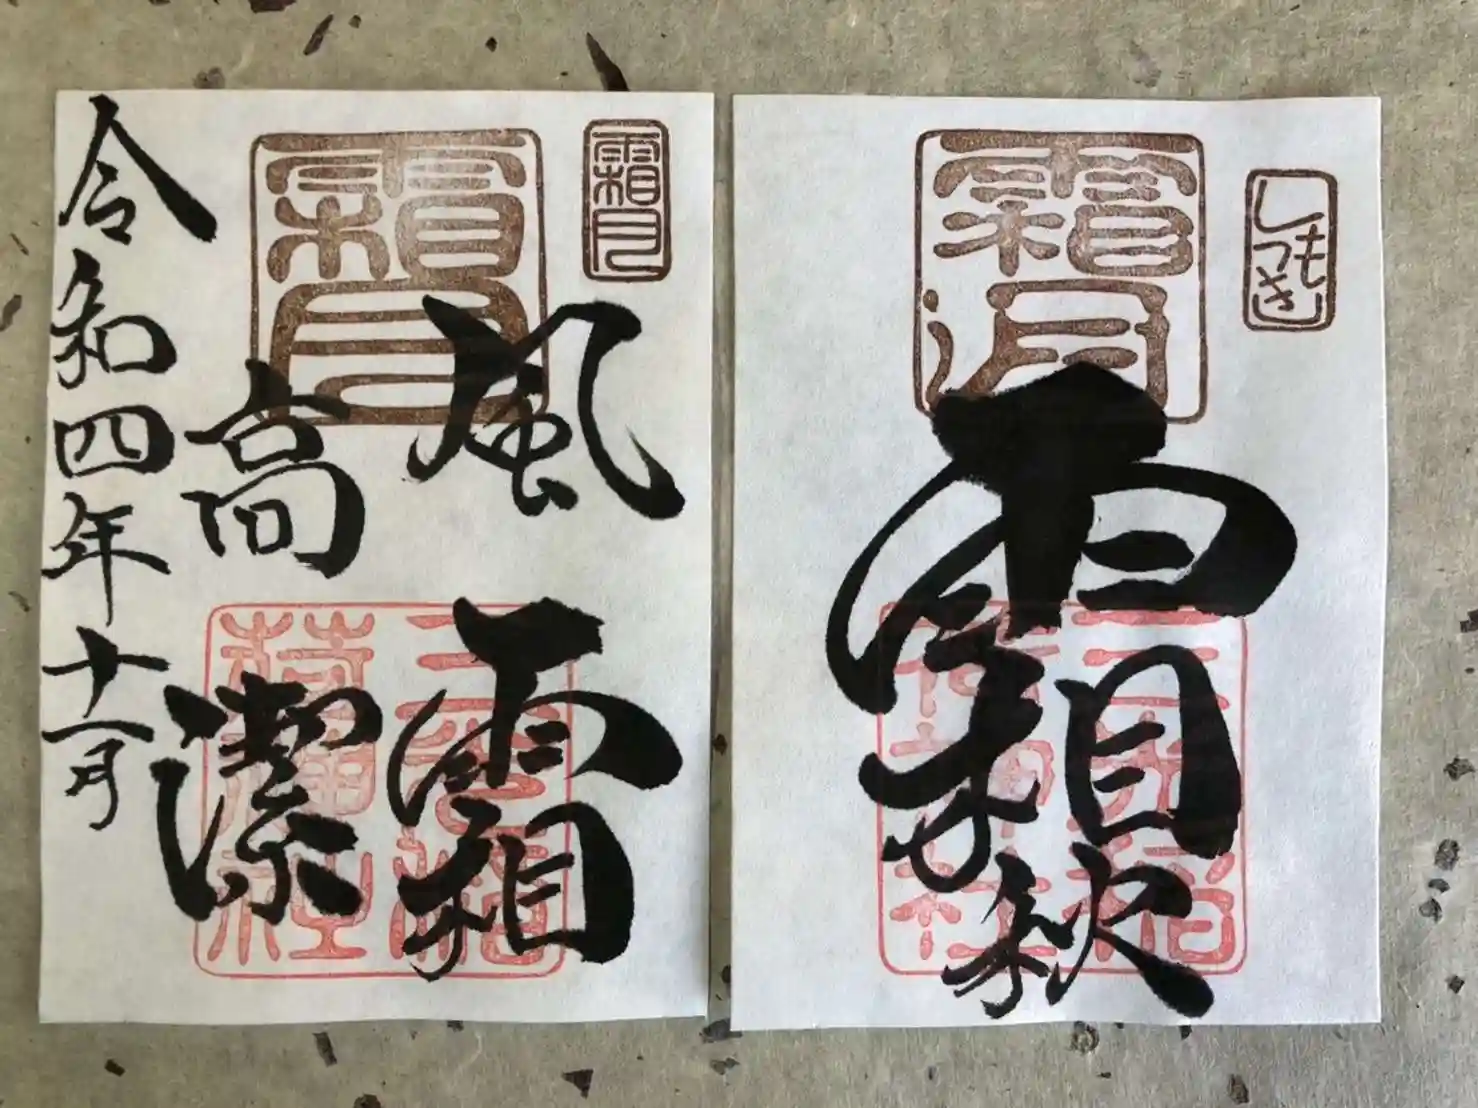 霜月
霜月
風霜
高潔
令和四年十一月
しもつき
霜月
霜秋